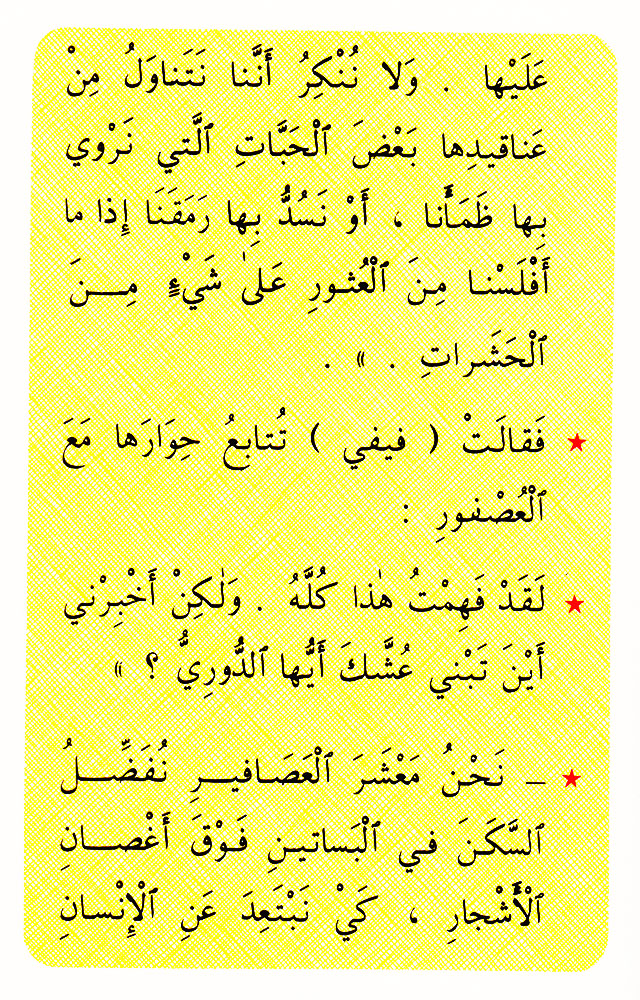 عَلَيْها . وَلا نُنْكِرُ أَنَّنا نَتَناوَلُ مِنْ
عَناقيدِها بَعْضَ ٱلْحَبَّاتِ ٱلَّتي نَرْوي
بِها ظَمَأَنا ، أَوْ نَسُدُّ بِها رَمَقَنَا إِذا ما
أَفْلَسْنا مِنَ ٱلْعُثورِ عَلىٰ شَيْءٍ مِــنَ
ٱلْحَشَراتِ . » .
★ فَقالَتْ ( فيفي ) تُتابِعُ حِوَارَها مَعَ
ٱلْعُصْفورِ :
★ لَقَدْ فَهِمْتُ هٰذا كُلَّهُ . وَلٰكِنْ أَخْبِرْني
أَيْنَ تَبْني عُشَّكَ أَيُّها ٱلدُّورِيُّ ؟ »
★ – نَحْنُ مَعْشَرَ ٱلْعَصَافيــرِ نُفَضِّــلُ
ٱلسَّكَنَ في ٱلْبَساتينِ فَوْقَ أَغْصــانِ
ٱلْأَشْجارِ ، كَيْ نَبْتَعِدَ عَنِ ٱلْإِنْسانِ